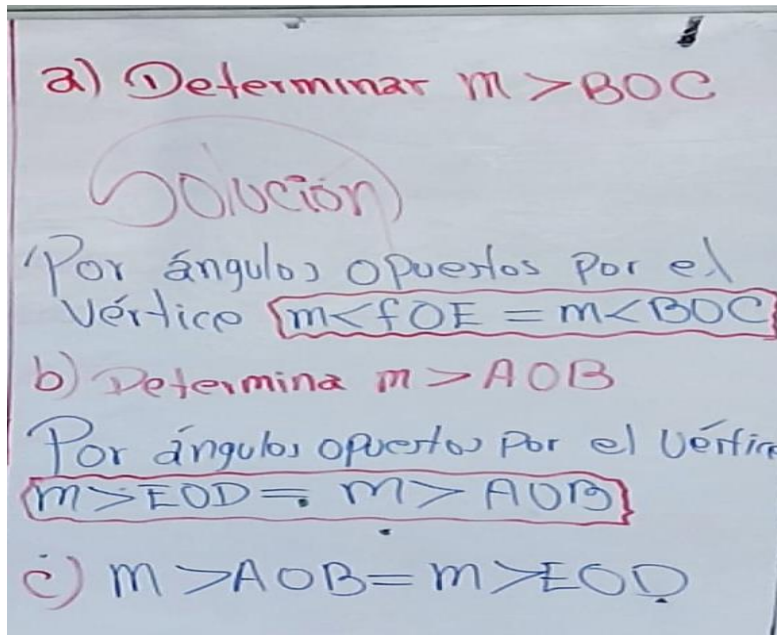 a) Determinar m>BOC
Solución
Por ángulos opuestos por el
vértice m<fOE = m<BOC
b) Determina m>AOB
Por ángulos opuestos por el vértice
m>EOD = m>AOB
c) m>AOB = m>EOD